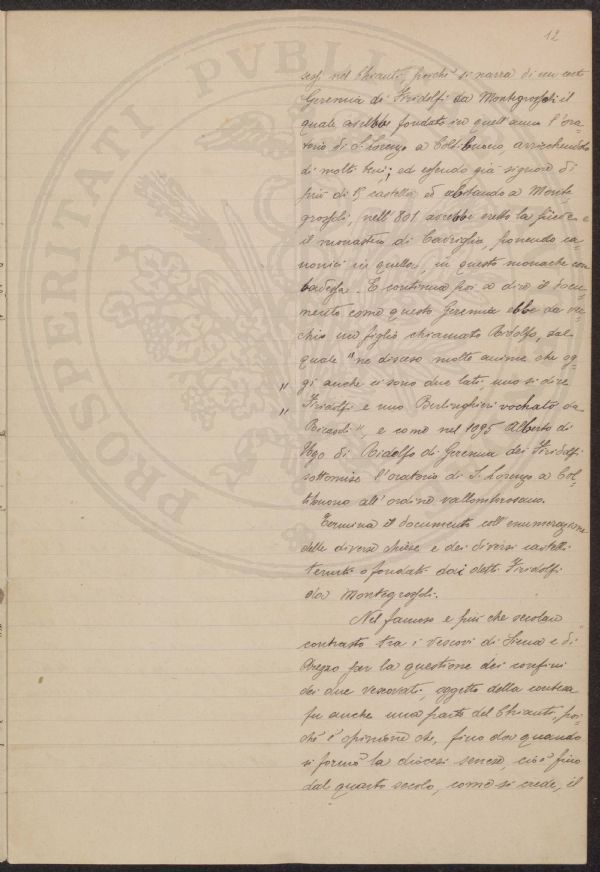 12
sessi nel Chianti, poichè si narra di un certo
Geremia di Firidolfi da Montegrossoli il
quale avrebbe fondato in quell'anno l'ora=
torio di S. Lorenzo a Coltibuono, arricchendolo
di molti beni; ed essendo già signore di
più di 15 castella ed abitando a Monte
grossoli, nell'801 avrebbe eretto la pieve e
il monastero di Cavriglia, ponendo ca=
nonici in quella, in questo monache con
badessa. E continua poi a dire il docu=
mento come questo Geremia ebbe da vec=
chio un figlio chiamato Ridolfo, dal
quale "ne discese molte anime che og=
" gi anche ci sono due lati, uno si dice
" Firidolfi e uno Berlinghieri vochato da
Ricasoli", e come nel 1095 Alberto di
Ugo di Ridolfo di Geremia dei Firidolfi
sottomise l'oratorio di S. Lorenzo a Col=
tibuono all'ordine vallombrosano.
Termina il documento coll'enumerazione
delle diverse chiese e dei diversi castelli
tenuti o fondati dai detti Firidolfi
da Montegrossoli.
Nel famoso e più che secolare
contrasto tra i vescovi di Siena e di
Arezzo per la questione dei confini
dei due vescovati, oggetto della contesa
fu anche una parte del Chianti, poi=
chè è opinione che, fino da quando
si formò la diocesi senese, cioè fino
dal quarto secolo, come si crede, il
PROSPERITATI PVBLI